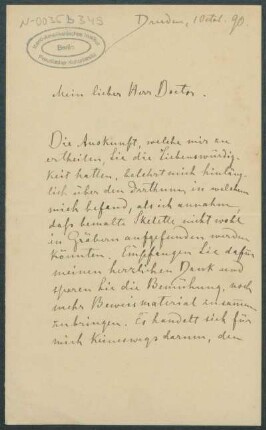 N-0035 b 345
Ibero-Amerikanisches Institut
Berlin
Preußischer Kulturbesitz
Dresden, 1 Octob. 90.
Mein lieber Herr Doctor.
Die Auskunft, welche mir zu
ertheilen, Sie die Liebenswürdig-
keit hatten, belehrt mich hinläng-
lich über den Irrthum in welchem
mich befand, als ich annahm,
dass bemalte Skelette nicht wohl
in Gräbern aufgefunden werden
könnten. Empfangen Sie dafür
meinen herzlichen Dank und
sparen Sie die Bemühung, noch
mehr Beweismaterial zusammen
zubringen. Es handelt sich für
mich keineswegs darum, den